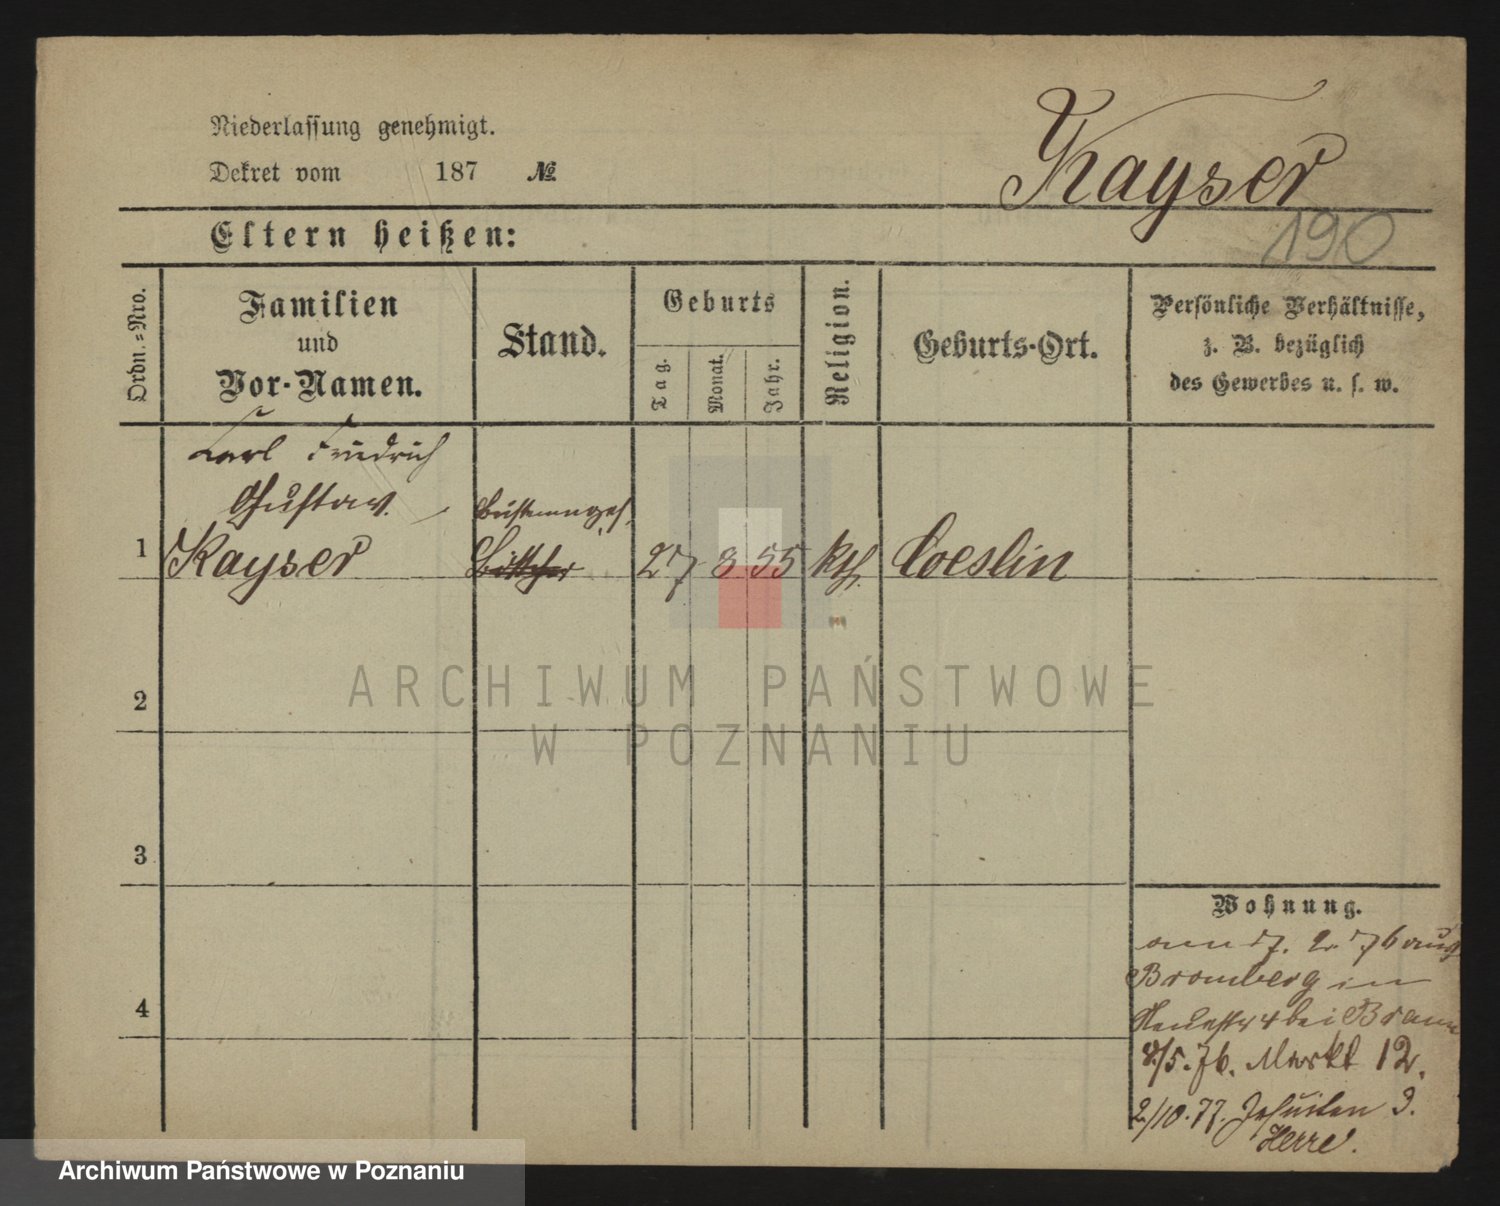 Niederlassung genehmigt.
Dekret vom 187 №
Kayser
190
Eltern heißen:
Ordn.-Nro.
Familien
und
Vor-Namen.
Stand.
Geburts
Tag.
Monat.
Jahr.
Religion.
Geburts-Ort.
Persönliche Verhältnisse,
z. B. bezüglich
des Gewerbes u. s. w.
Carl Friedrich
Gustav.
1 Kayser 27 3 55 kth. Coeslin
2
3
4
Wohnung.
17. 2. 76 aus
Bromberg in
4 bei Braun
8/5. 76. Markt 12.
2/10. 77. Jesuiten 3.
Herre.
ARCHIWUM PAŃSTWOWE
W POZNANIU
Archiwum Państwowe w Poznaniu